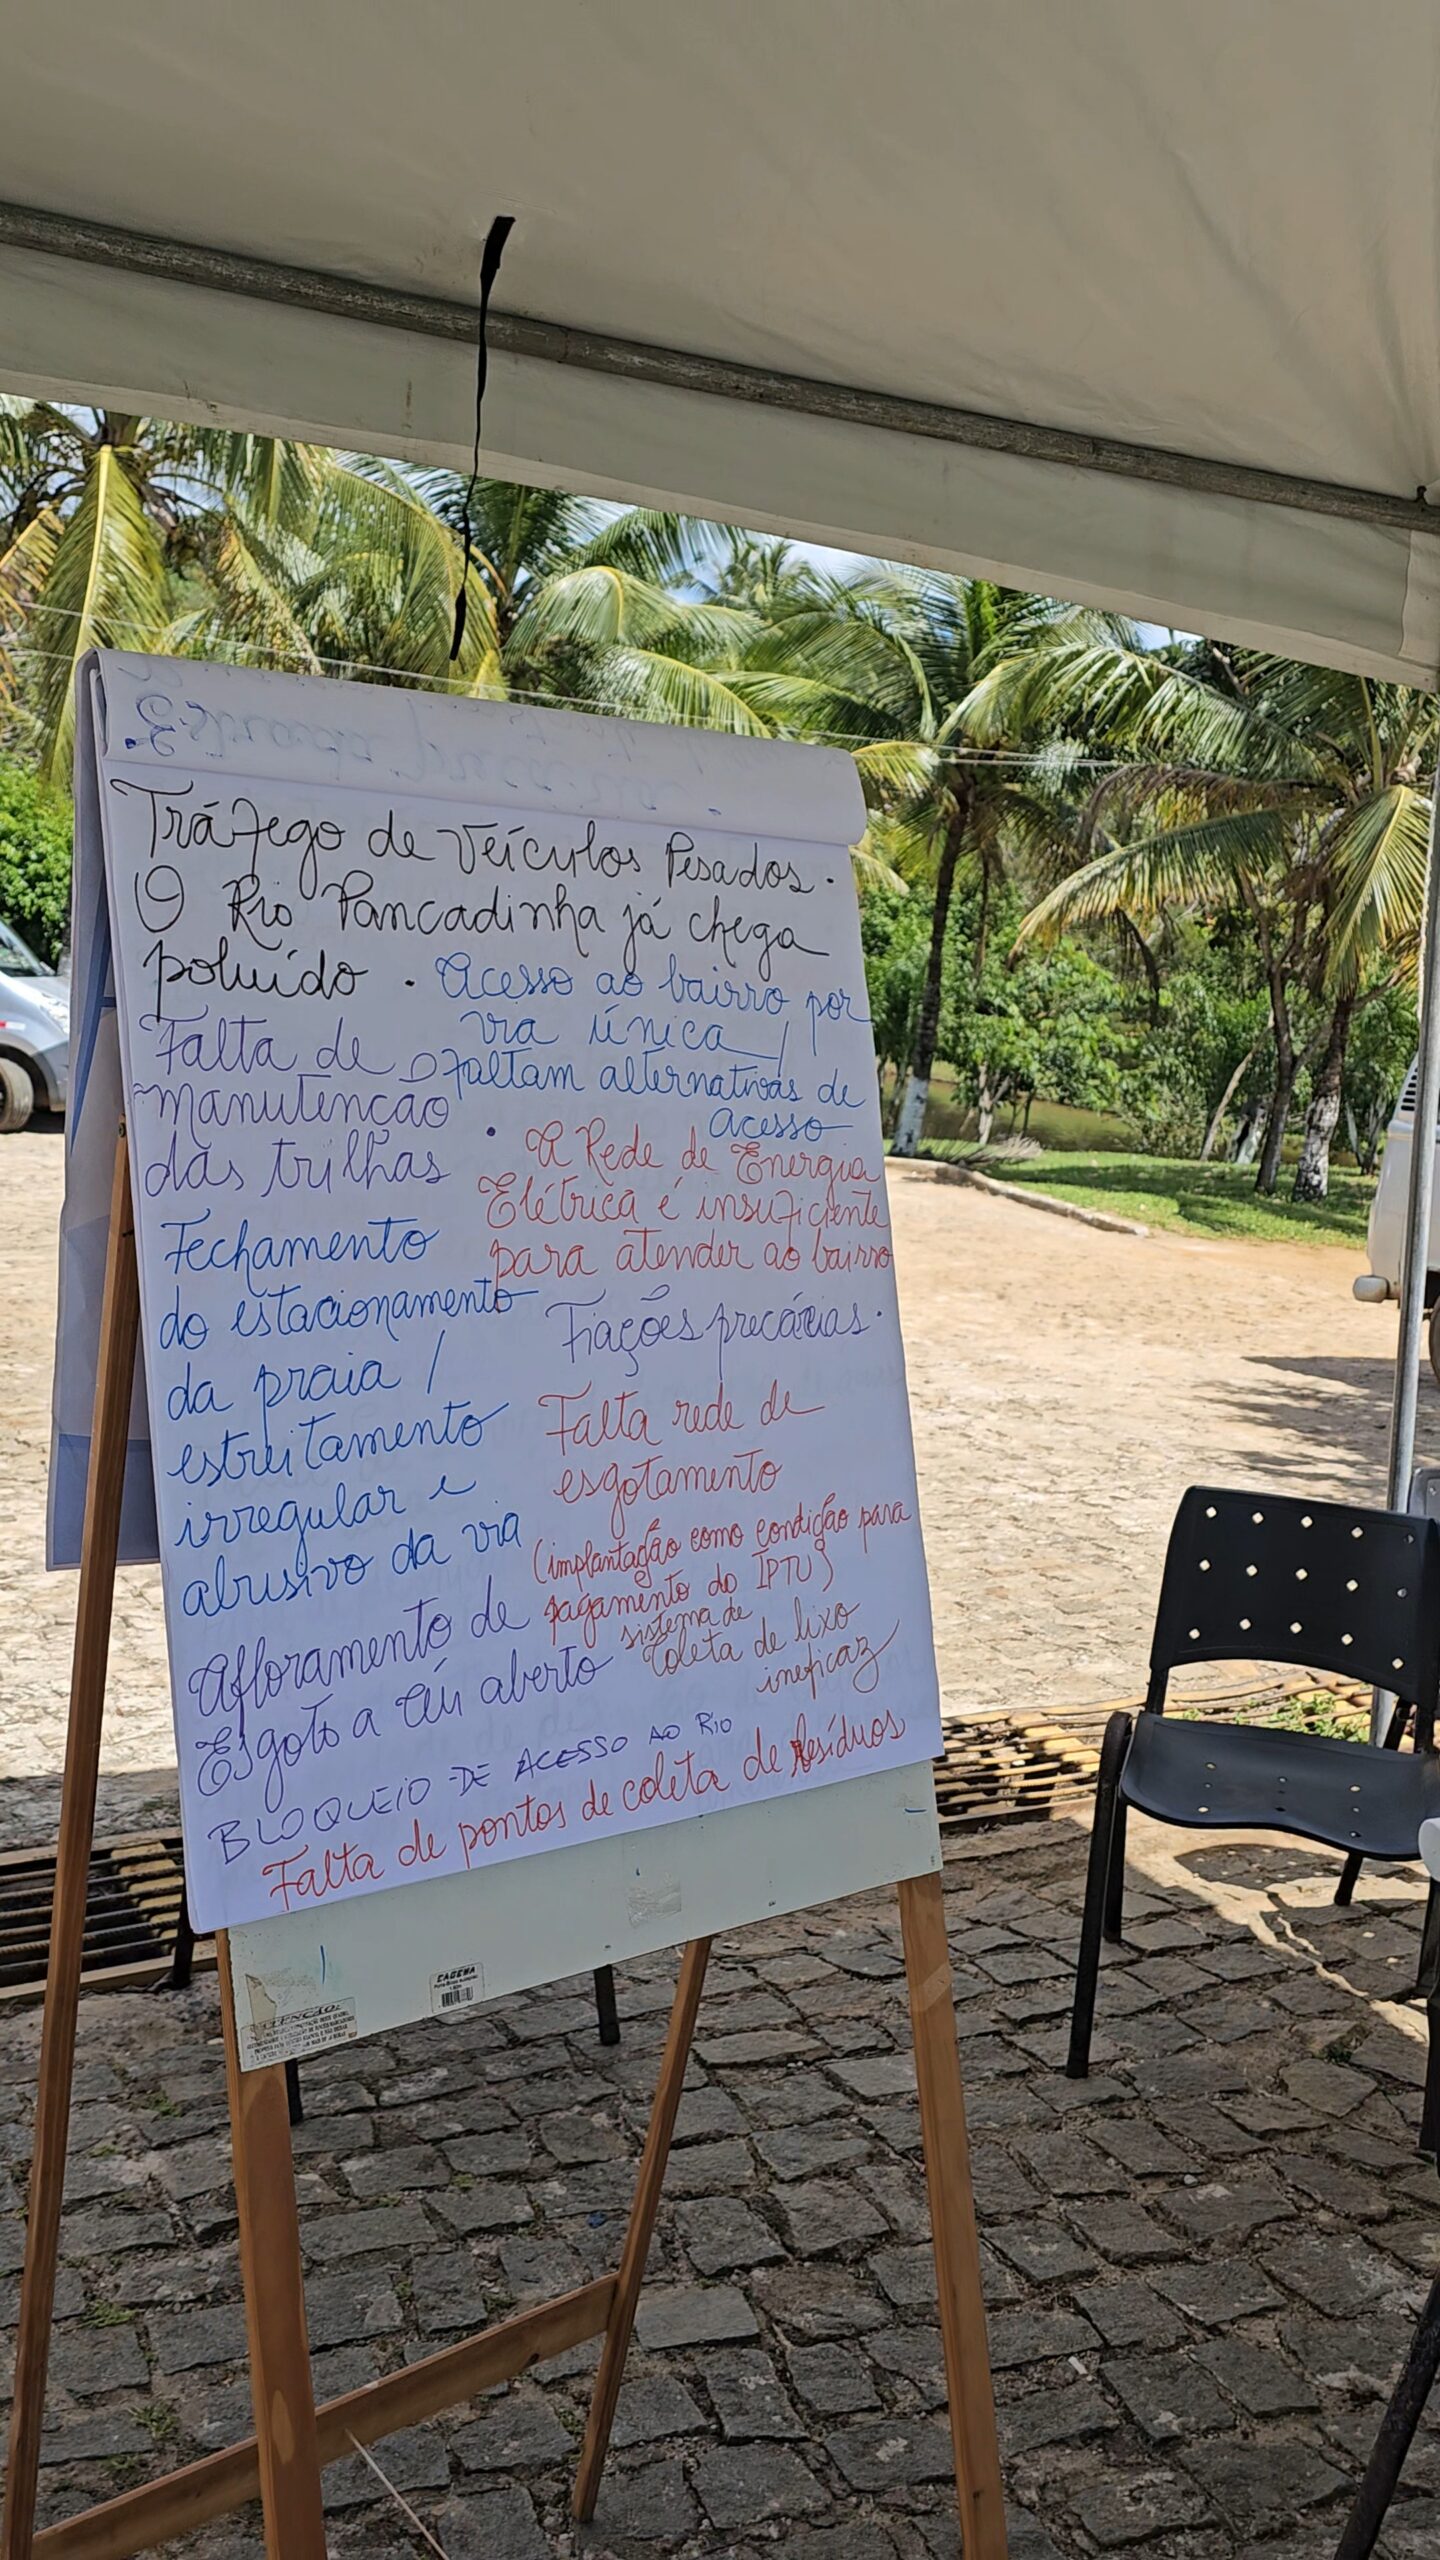 Tráfego de Veículos Pesados.
O Rio Pancadinha já chega
poluído.
Acesso ao bairro por
via única /
faltam alternativas de
acesso
Falta de
manutenção
das trilhas
• A Rede de Energia
Elétrica é insuficiente
para atender ao bairro
Fechamento
do estacionamento
da praia /
estreitamento
irregular e
abusivo da via
Fiações precárias.
Falta rede de
esgotamento
(implantação como condição para
pagamento do IPTU)
Afloramento de
Esgoto a Céu aberto
sistema de
Coleta de lixo
ineficaz
BLOQUEIO DE ACESSO AO RIO
Falta de pontos de coleta de Resíduos
CAGEMA
ATENÇÃO: